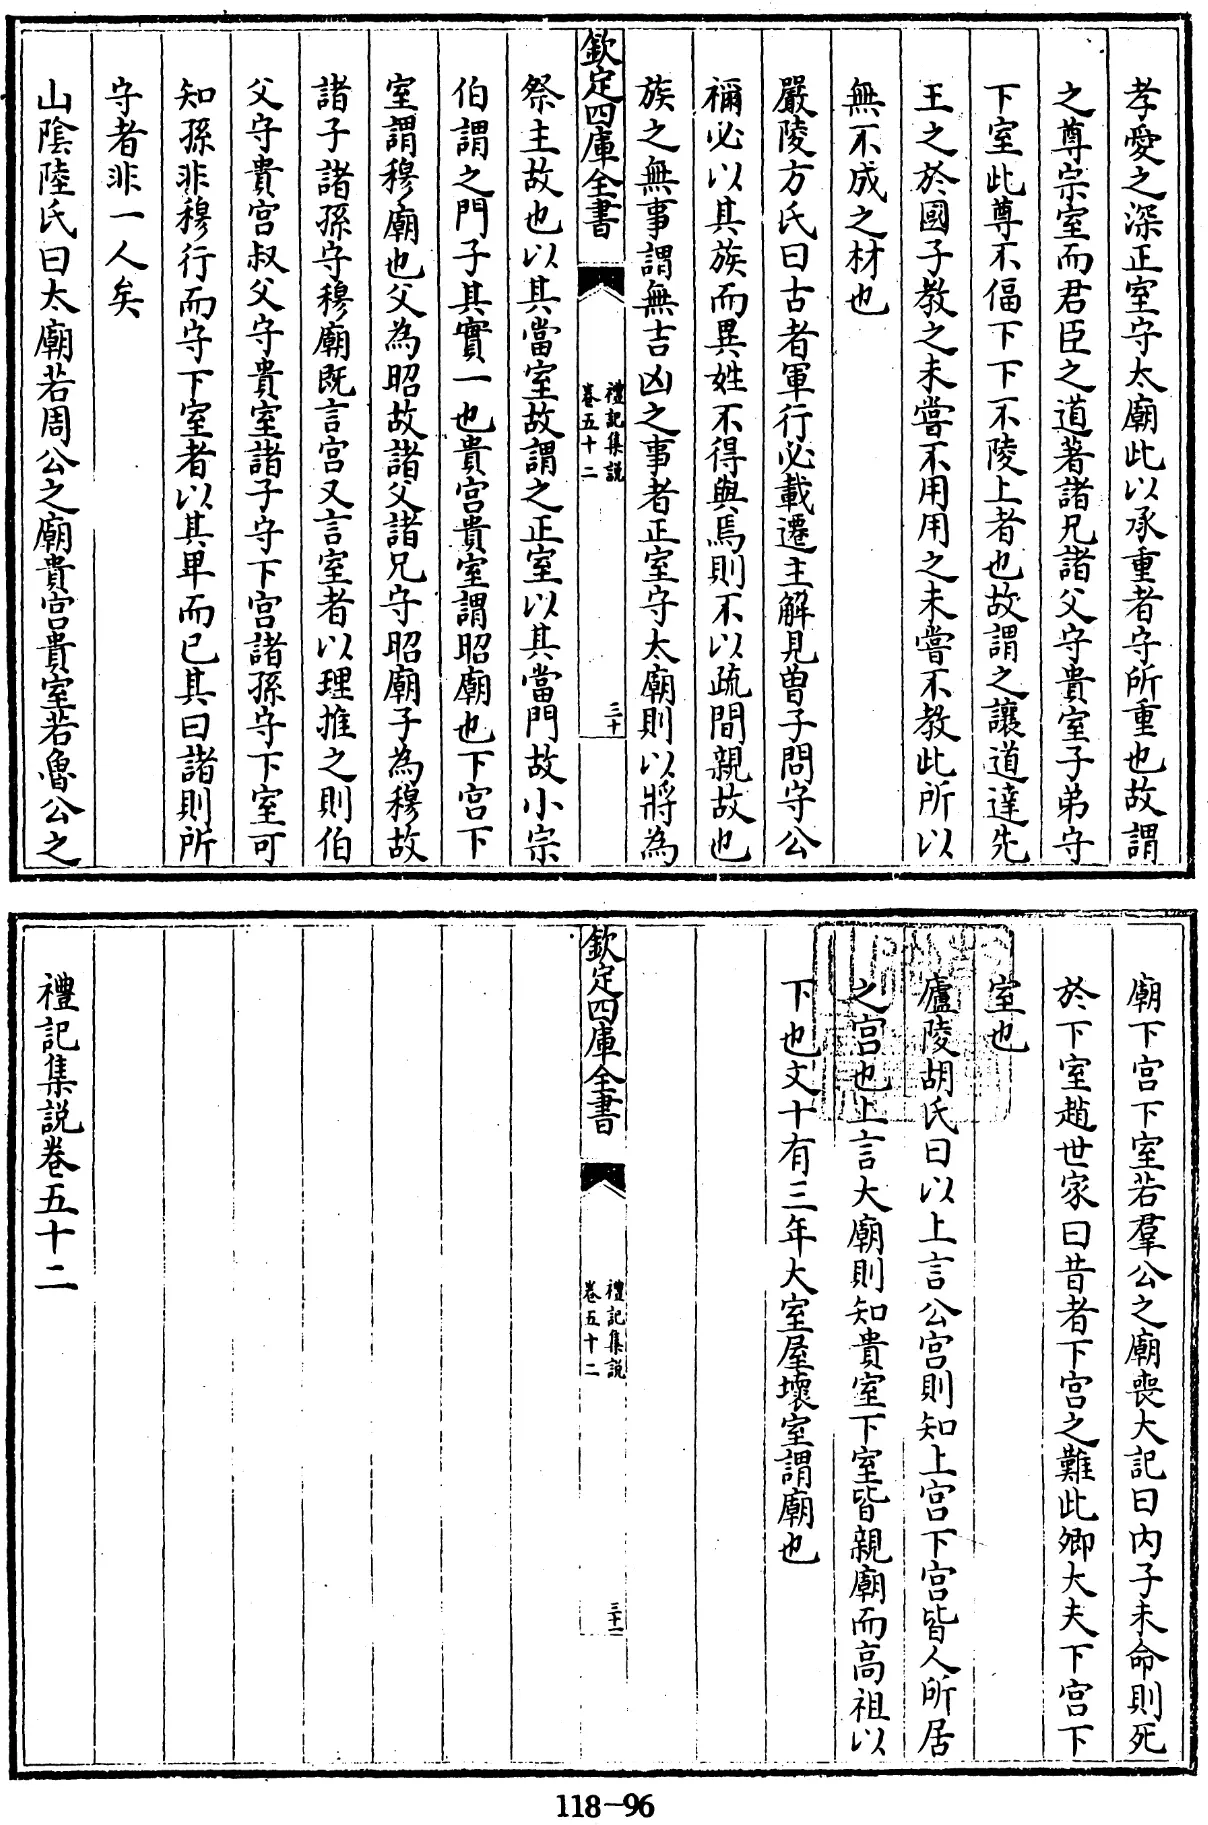 孝愛之深正室守太廟此以承重者守所重也故謂
之尊宗室而君臣之道著諸兄諸父守貴室子弟守
下室此尊不偪下下不陵上者也故謂之讓道達先
王之於國子教之未嘗不用用之未嘗不教此所以
無不成之材也
嚴陵方氏曰古者軍行必載遷主解見曾子問守公
禰必以其族而異姓不得與焉則不以疏間親故也
族之無事謂無吉凶之事者正室守太廟則以將為
欽定四庫全書
禮記集説
卷五十二
三十
祭主故也以其當室故謂之正室以其當門故小宗
伯謂之門子其實一也貴宫貴室謂昭廟也下宫下
室謂穆廟也父為昭故諸父諸兄守昭廟子為穆故
諸子諸孫守穆廟既言宫又言室者以理推之則伯
父守貴宫叔父守貴室諸子守下宫諸孫守下室可
知孫非穆行而守下室者以其卑而已其曰諸則所
守者非一人矣
山隂陸氏曰太廟若周公之廟貴宫貴室若魯公之
廟下宫下室若羣公之廟喪大記曰内子未命則死
於下室趙世家曰昔者下宫之難此卿大夫下宫下
室也
廬陵胡氏曰以上言公宫則知上宫下宫皆人所居
之宫也上言大廟則知貴室下室皆親廟而高祖以
下也文十有三年大室屋壞室謂廟也
欽定四庫全書
禮記集説
卷五十二
三十一
禮記集説卷五十二
118-96